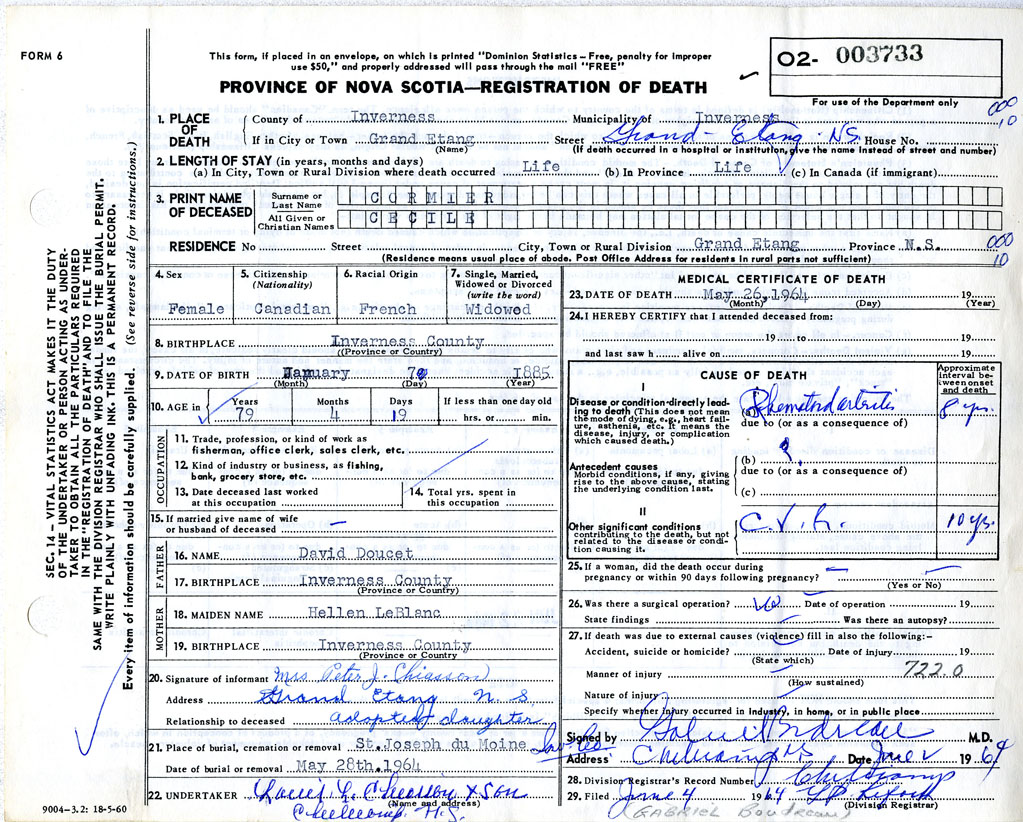 FORM 6
This form, if placed in an envelope, on which is printed "Dominion Statistics – Free, penalty for improper
use $50," and properly addressed will pass through the mail "FREE"
O2- 003733
PROVINCE OF NOVA SCOTIA—REGISTRATION OF DEATH
For use of the Department only
000
10
1. PLACE OF DEATH
County of Inverness Municipality of Inverness
If in City or Town Grand Etang (Name) Street Grand-Etang. N.S. House No.
(If death occurred in a hospital or institution, give the name instead of street and number)
2. LENGTH OF STAY (in years, months and days)
(a) In City, Town or Rural Division where death occurred Life (b) In Province Life (c) In Canada (if immigrant)
3. PRINT NAME OF DECEASED
Surname or Last Name CORMIER
All Given or Christian Names CECILE
RESIDENCE No Street City, Town or Rural Division Grand Etang Province N.S.
000
10
(Residence means usual place of abode. Post Office Address for residents in rural parts not sufficient)
4. Sex Female
5. Citizenship (Nationality) Canadian
6. Racial Origin French
7. Single, Married, Widowed or Divorced (write the word) Widowed
8. BIRTHPLACE Inverness County
(Province or Country)
9. DATE OF BIRTH January 7 1885
(Month) (Day) (Year)
10. AGE in Years 79 Months 4 Days 19 If less than one day old hrs. or min.
OCCUPATION
11. Trade, profession, or kind of work as
fisherman, office clerk, sales clerk, etc.
12. Kind of industry or business, as fishing,
bank, grocery store, etc.
13. Date deceased last worked
at this occupation
14. Total yrs. spent in
this occupation
15. If married give name of wife
or husband of deceased –
FATHER
16. NAME David Doucet
17. BIRTHPLACE Inverness County
(Province or Country)
MOTHER
18. MAIDEN NAME Hellen LeBlanc
19. BIRTHPLACE Inverness County
(Province or Country
20. Signature of informant Mrs Peter J. Chiasson
Address Grand Etang N. S.
Relationship to deceased Adopted daughter
21. Place of burial, cremation or removal St. Joseph du Moine
Date of burial or removal May 28th. 1964
22. UNDERTAKER & Son
(Name and address)
N.S.
9004–3.2: 18-5-60
SEC. 14 – VITAL STATISTICS ACT MAKES IT THE DUTY
OF THE UNDERTAKER OR PERSON ACTING AS UNDER-
TAKER TO OBTAIN ALL THE PARTICULARS REQUIRED
IN THE "REGISTRATION OF DEATH" AND TO FILE THE
SAME WITH THE DIVISION REGISTRAR WHO SHALL ISSUE THE BURIAL PERMIT.
WRITE PLAINLY WITH UNFADING INK. THIS IS A PERMANENT RECORD.
Every item of information should be carefully supplied. (See reverse side for instructions.)
MEDICAL CERTIFICATE OF DEATH
23. DATE OF DEATH May 26, 1964 19
(Month) (Day) (Year)
24. I HEREBY CERTIFY that I attended deceased from:
19 to 19
and last saw h alive on 19
CAUSE OF DEATH
Approximate interval between onset and death
I
Disease or condition directly leading to death (This does not mean the mode of dying, e.g., heart failure, asthenia, etc. It means the disease, injury, or complication which caused death.)
(a) Rhematoid artritis 8 yrs.
due to (or as a consequence of)
Antecedent causes
Morbid conditions, if any, giving rise to the above cause, stating the underlying condition last.
(b) ?
due to (or as a consequence of)
(c)
II
Other significant conditions
contributing to the death, but not related to the disease or condition causing it.
10 yrs.
25. If a woman, did the death occur during
pregnancy or within 90 days following pregnancy? –
(Yes or No)
26. Was there a surgical operation? No Date of operation 19
State findings Was there an autopsy?
27. If death was due to external causes (violence) fill in also the following:–
Accident, suicide or homicide? Date of injury 19
(State which)
Manner of injury 722.0
(How sustained)
Nature of injury
Specify whether injury occurred in industry, in home, or in public place
Signed by Gabriel Boudreau M.D.
Address Cheticamp NS Date June 2 1964
28. Division Registrar's Record Number Cheticamp
29. Filed June 4 1964
(Division Registrar)
(GABRIEL Boudreau)